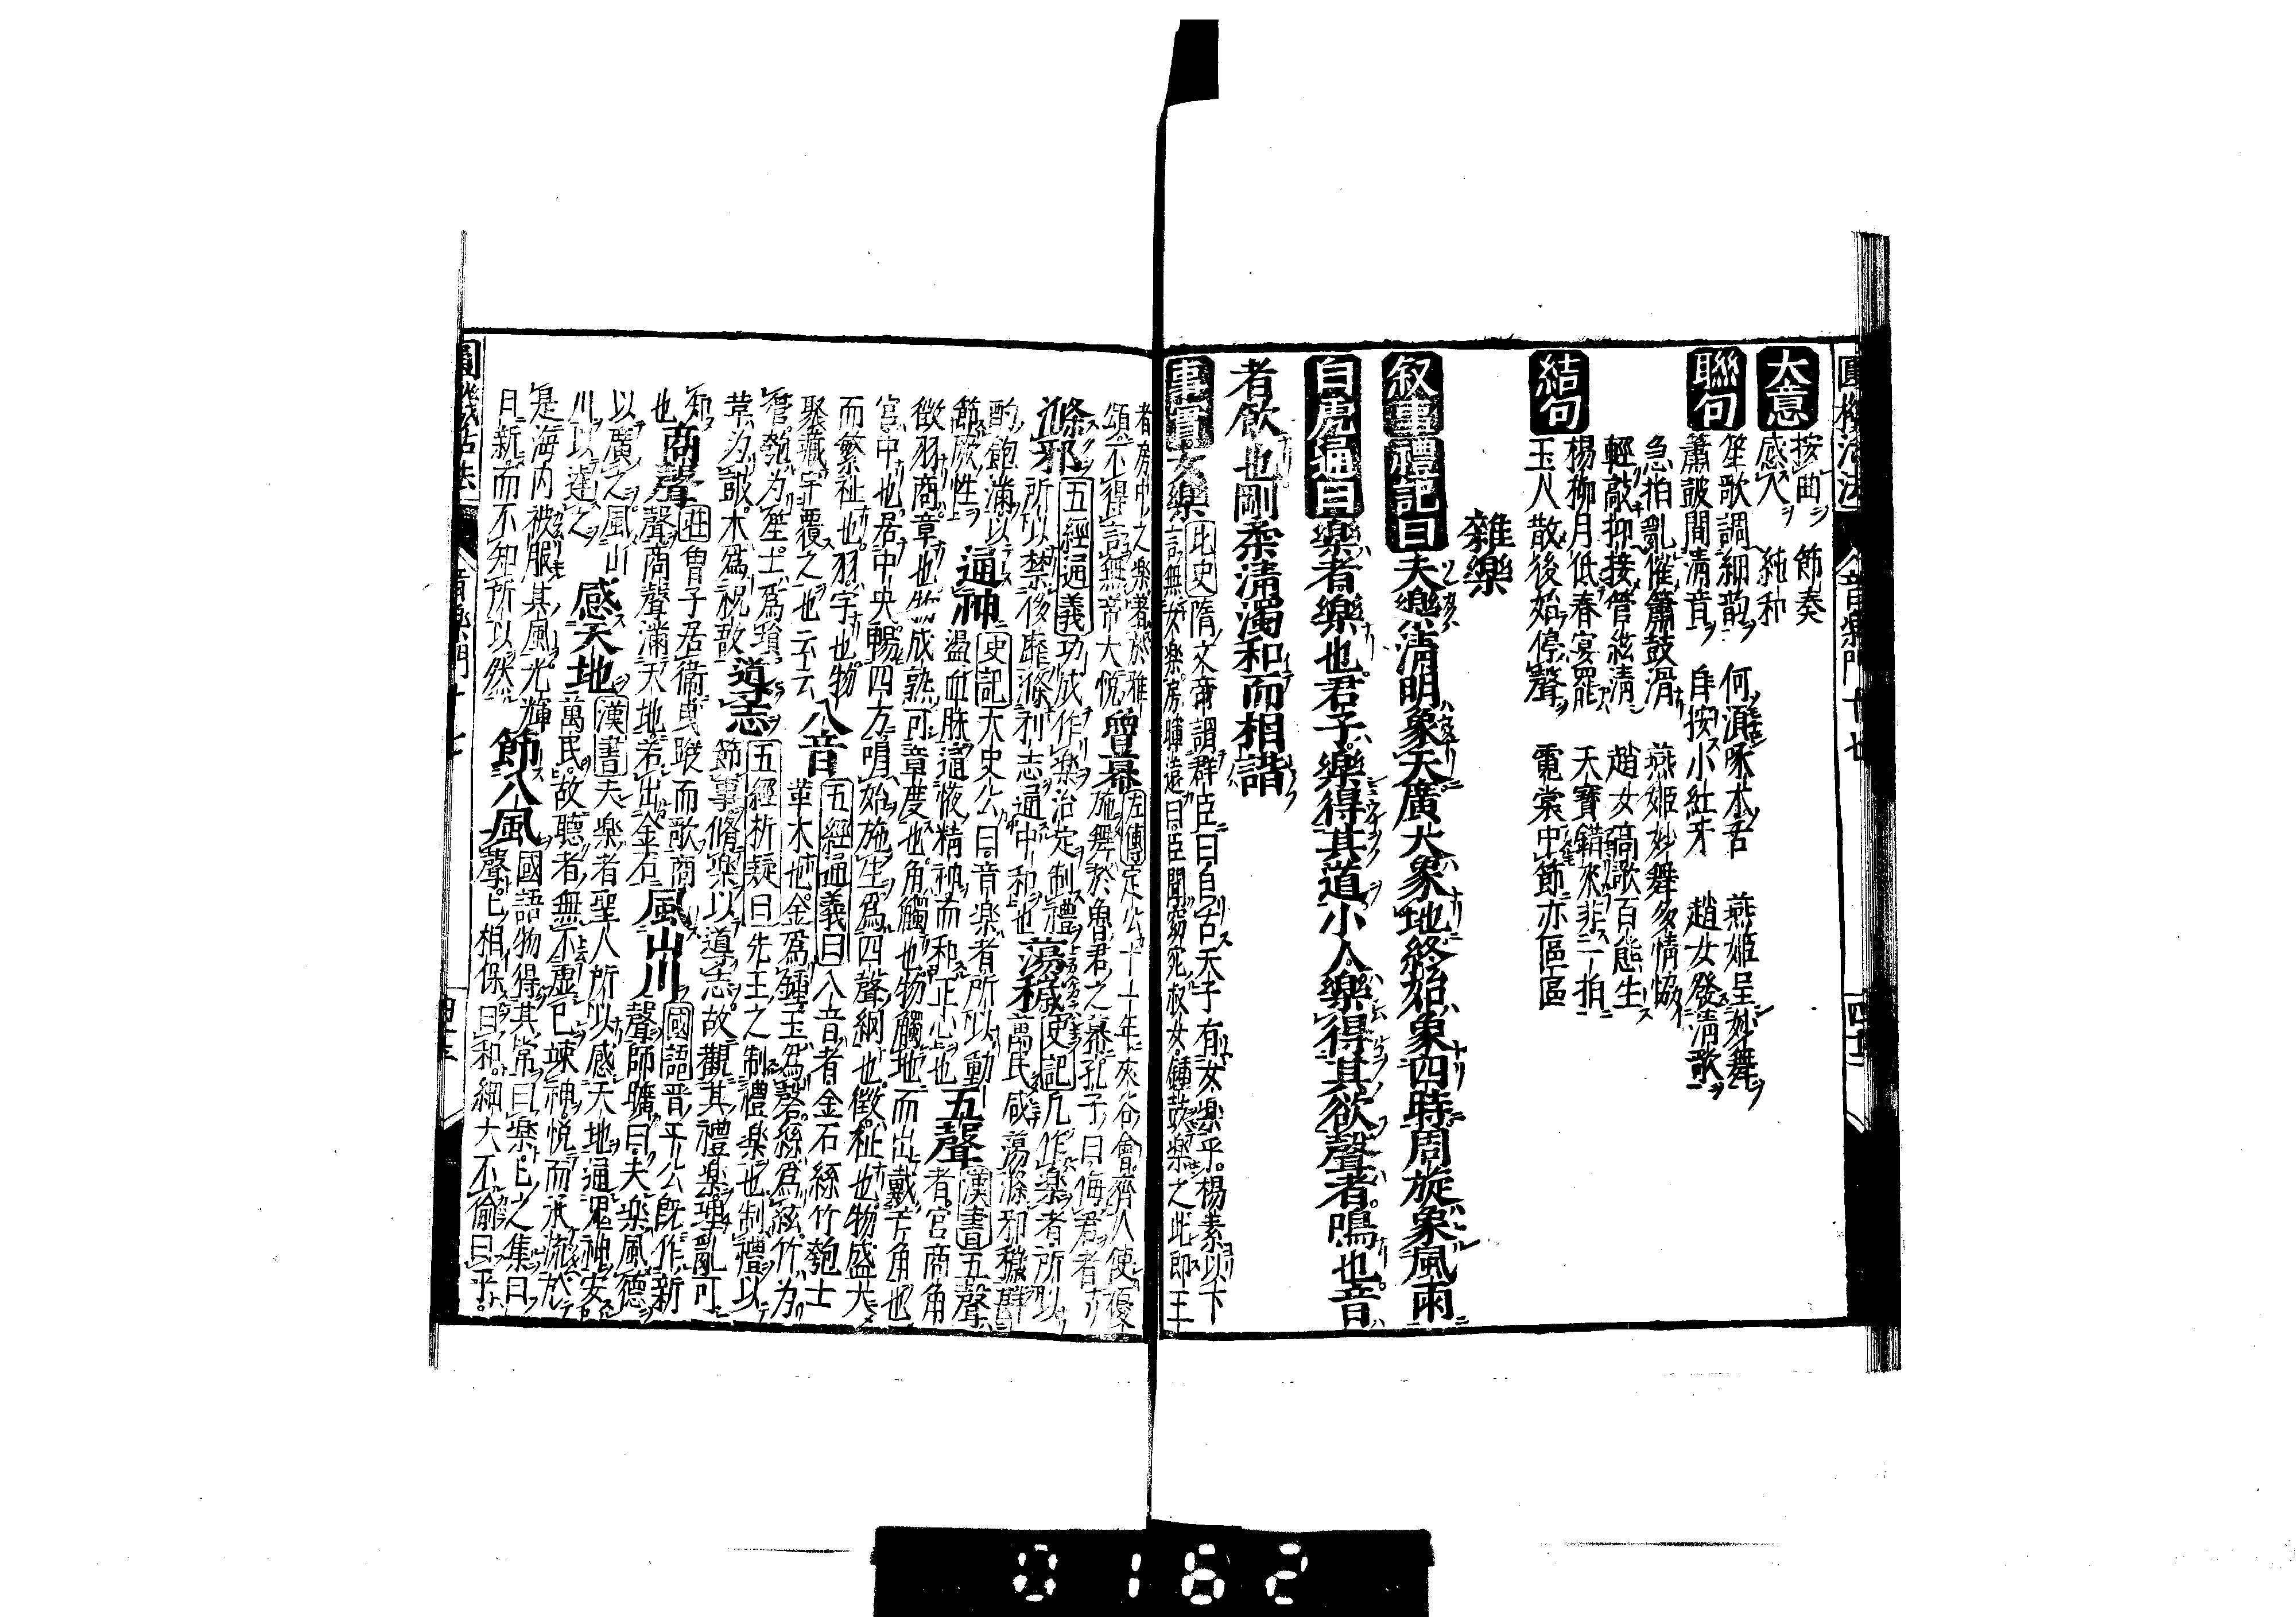 大意 按曲 節奏
感人 純和
聯句 笙歌調細韻 何湏啄木舌 燕姬呈妙舞
簫鼓間清音 自按小紅牙 趙女發清歌
急拍亂催簫鼓滑 燕姬妙舞多情恊
輕敲抑接管絃清 趙女 歌百態生
結句 楊柳月低春宴罷 天寶錯來非一拍
玉人散後始停聲 霓裳中節亦區區
雜樂
叙事 禮記曰 夫樂清明象天廣大象地終始象四時周旋象風雨
白虎通曰 樂者樂也君子樂得其道小人樂得其欲聲者鳴也音
者飲也剛柔清濁和而相諧
事實 女樂 北史隋文帝謂群臣曰自古天子有女樂乎楊素以下
言無女樂房暉遠曰臣聞窈窕淑女鍾鼓樂之此即王
者房中之樂著於雅
頌不得言無帝大悅 曾幕 左傳定公十年夾谷會齊人使優
施舞於魯君之幕孔子曰侮君者
滌邪 五經通義功成作樂治定制禮
所以禁後靡滌利志通中和也 蕩穢 史記凡作樂者所以
萬民咸蕩滌邪穢斟
酌飽滿以
節厥性 通神 史記大史公曰音樂者所以動
盪血脉通 精神而和正心也 五聲 漢書五聲
者宮商角
徵羽商章也物成熟可章度也角觸也物觸地而出戴芒角也
宮中也居中央暢四方唱始施生爲四聲綱也徵祉也物盛大
而繁祉也羽宇也物
聚藏宇覆之也云云 八音 五經通義曰八音者金石絲竹匏土
革木也金爲鍾玉爲磬絲爲絃竹为
管匏为笙土爲塤
革为鼓木爲柷敔 道志 五經析疑曰先王之制禮樂也制禮以
節事脩樂以導志故觀其禮樂理亂可
知
也 商聲 莊曾子居衞曳履而歌商
聲商聲滿天地若出金石 風山川 國語晋平公既作新
聲師曠曰夫樂風德
以廣之風山
川以達之 感天地 漢書夫樂者聖人所以感天地通鬼神安
萬民故聽者無不虛已竦神悅而承流於
是海内被服其風光輝
日新而不知所以然 節八風 國語物得其常曰樂已之集曰
聲已相保曰和細大不偷曰乎